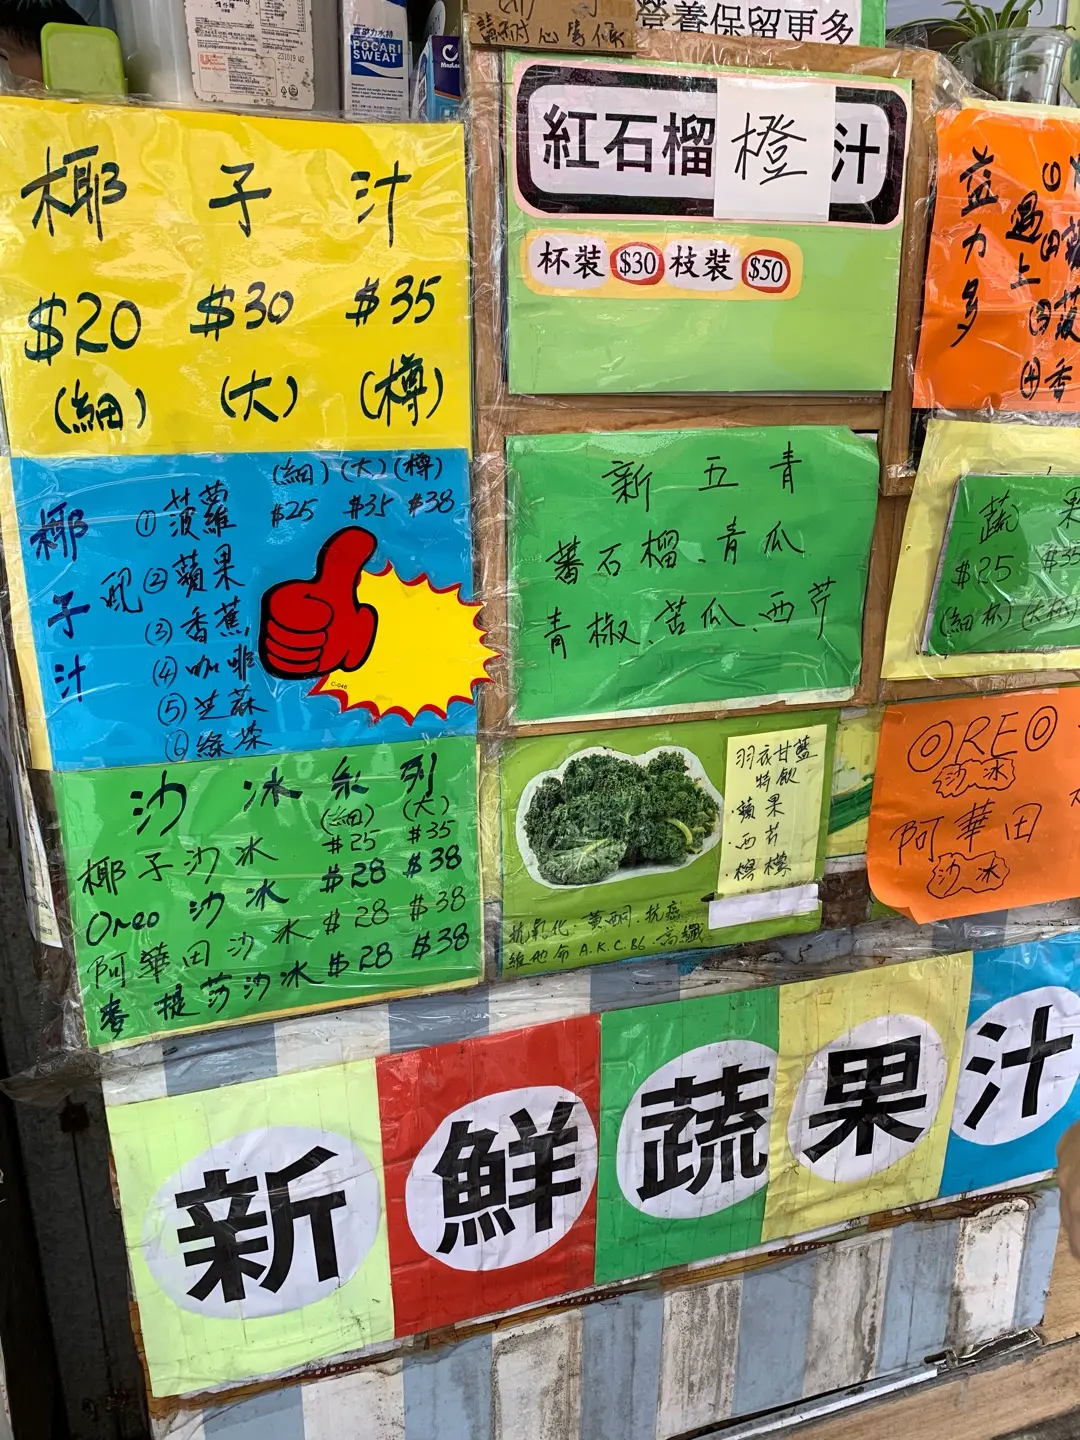 POCARI
SWEAT
營養保留更多
椰子汁
$20 $30 $35
(細) (大) (樽)
紅石榴橙汁
杯裝 $30 枝裝 $50
益力多
椰子汁
配
(細) (大) (樽)
① 菠蘿 $25 $35 $38
② 蘋果
③ 香蕉
④ 咖啡
⑤ 芝蔴
⑥ 綠茶
C-046
新五青
蕃石榴、青瓜
青椒、苦瓜、西芹
蔬果
$25 $35
(細杯) (大杯)
沙冰系列
(細) (大)
椰子沙冰 $25 $35
Oreo 沙冰 $28 $38
阿華田沙冰 $28 $38
麥提莎沙冰 $28 $38
羽衣甘藍
特飲
·蘋果
·西芹
·檸檬
抗氧化·黃酮·抗癌
維他命 A.K.C.B6·高纖
OREO
沙冰
阿華田
沙冰
新鮮蔬果汁